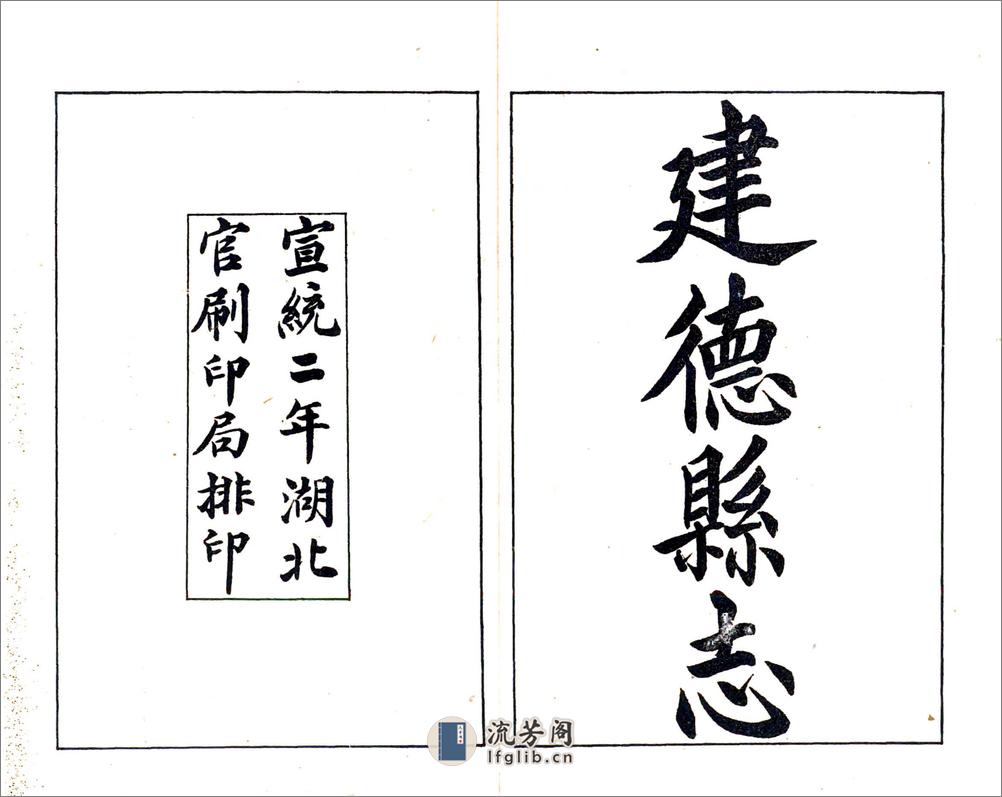 建德縣志
宣統二年湖北
官刷印局排印
流芳阁
lfglib.cn